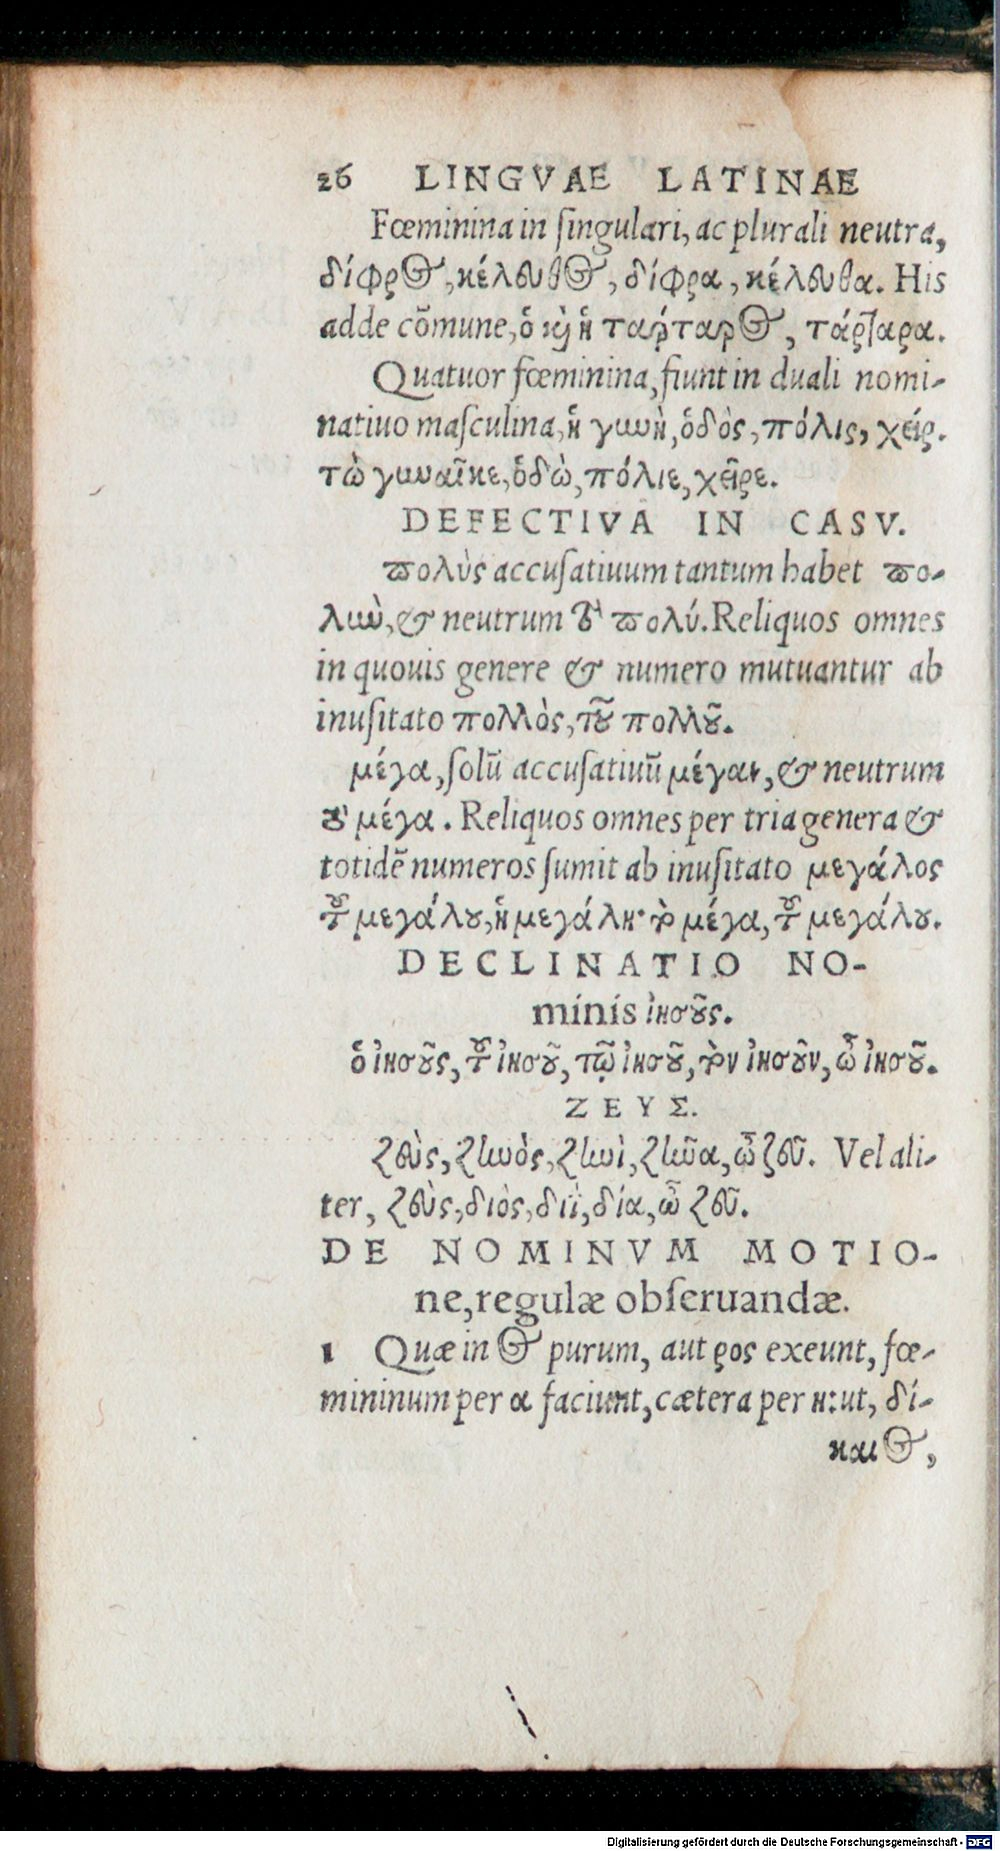 26 LINGVAE LATINAE
Fœminina in ſingulari, ac plurali neutra,
δίφρος, κέλευθος, δίφρα, κέλευθα. His
adde cōmune, ὁ καὶ ἡ τάρταρος, τάρταρα.
Quatuor fœminina, fiunt in duali nomi-
natiuo maſculina, ἡ γυνὴ, ὁδὸς, πόλις, χείρ.
τὼ γυναῖκε, ὁδὼ, πόλιε, χεῖρε.
DEFECTIVA IN CASV.
ϖολὺς accuſatiuum tantum habet ϖο-
λιὼ, & neutrum τὸ ϖολύ. Reliquos omnes
in quouis genere & numero mutuantur ab
inuſitato πολλὸς, τοῦ πολλοῦ.
μέγα, ſolū accuſatiuū μέγαν, & neutrum
τὸ μέγα. Reliquos omnes per tria genera &
totidē numeros ſumit ab inuſitato μεγάλος
τοῦ μεγάλου, ἡ μεγάλη· τὸ μέγα, τοῦ μεγάλου.
DECLINATIO NO-
minis ἰησοῦς.
ὁ ἰησοῦς, τοῦ ἰησοῦ, τῷ ἰησοῦ, τὸν ἰησοῦν, ὦ ἰησοῦ.
ΖΕΥΣ.
ζεὺς, ζηνὸς, ζηνὶ, ζῆνα, ὦ ζεῦ. Vel ali-
ter, ζεὺς, διὸς, διῒ, δία, ὦ ζεῦ.
DE NOMINVM MOTIO-
ne, regulæ obſeruandæ.
1 Quæ in ος purum, aut ρος exeunt, fœ-
mininum per α faciunt, cætera per η: ut, δί-
καιος,
Digitalisierung gefördert durch die Deutsche Forschungsgemeinschaft - DFG